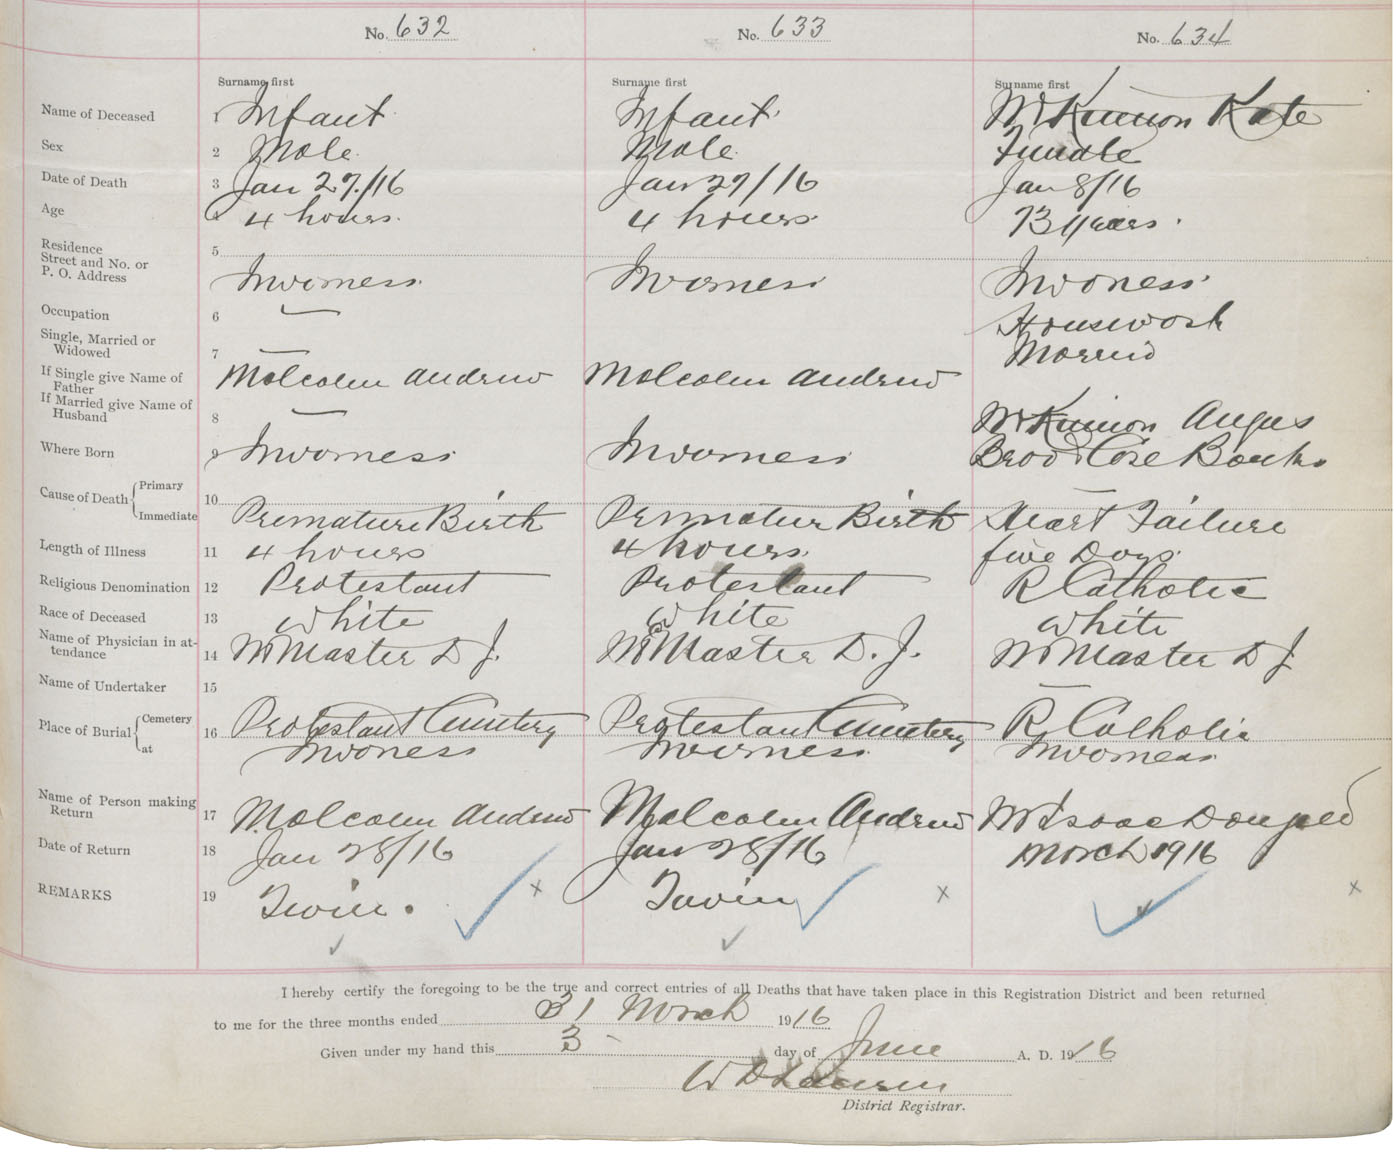 No. 632 No. 633 No. 634
Surname first Surname first Surname first
Name of Deceased 1 Infant Infant McKinnon Kate
Sex 2 Male Male Female
Date of Death 3 Jan 27/16 Jan 27/16 Jan 8/16
Age 4 hours 4 hours 73 years
Residence 5
Street and No. or
P. O. Address Inverness Inverness Inverness
Occupation 6 — Housework
Single, Married or
Widowed 7 — Married
If Single give Name of
Father Malcolm Andrew Malcolm Andrew
If Married give Name of
Husband 8 — McKinnon Angus
Where Born 9 Inverness Inverness Broad Cove Banks
Cause of Death { Primary 10 —
Immediate Premature Birth Premature Birth Heart Failure
Length of Illness 11 4 hours 4 hours five Days
Religious Denomination 12 Protestant Protestant R Catholic
Race of Deceased 13 White White White
Name of Physician in at-
tendance 14 McMaster D J. McMaster D. J. McMaster D J
Name of Undertaker 15 —
Place of Burial { Cemetery 16 Protestant Cemetery Protestant Cemetery R Catholic
at Inverness Inverness Inverness
Name of Person making
Return 17 Malcolm Andrew Malcolm Andrew McIsaac Dougald
Date of Return 18 Jan 28/16 Jan 28/16 March 1916
REMARKS 19 Twin. Twin
I hereby certify the foregoing to be the true and correct entries of all Deaths that have taken place in this Registration District and been returned
to me for the three months ended 31 March 1916
Given under my hand this 3 day of June A. D. 1916
W D
District Registrar.